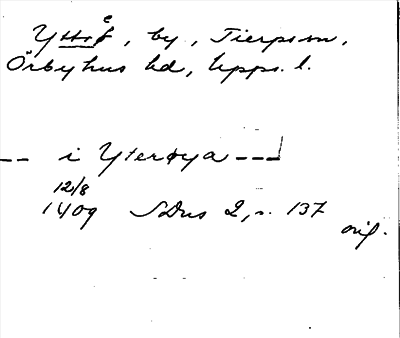 Yttrö, by, Tierps sn,
Örbyhus hd, Upps. l.
-- i Yterøya ---
12/8
1409 SDns 2, s. 137
orig.